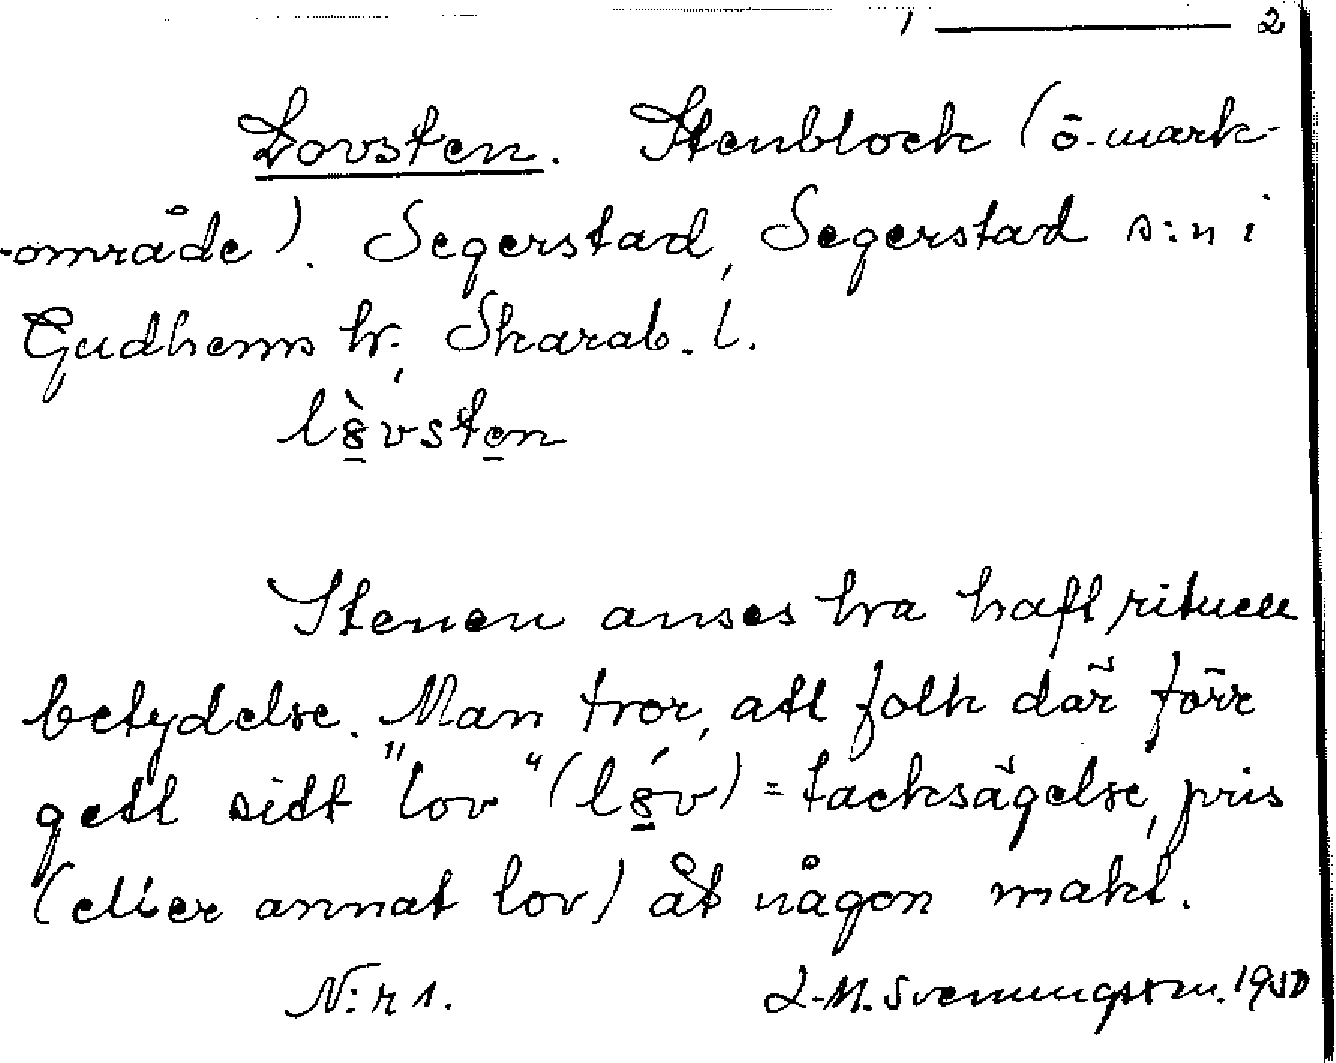 1 2
Lovsten. Stenblock (ö. mark-
-område). Segerstad, Segerstad s:n i
Gudhems hr., Skarab. l.
Stenen anses ha haft rituell
betydelse. Man tror, att folk där förr
gett sidt "lov" = tacksägelse, pris
(eller annat lov) åt någon makt.
N:r 1. L-M. Svenungsson. 1950